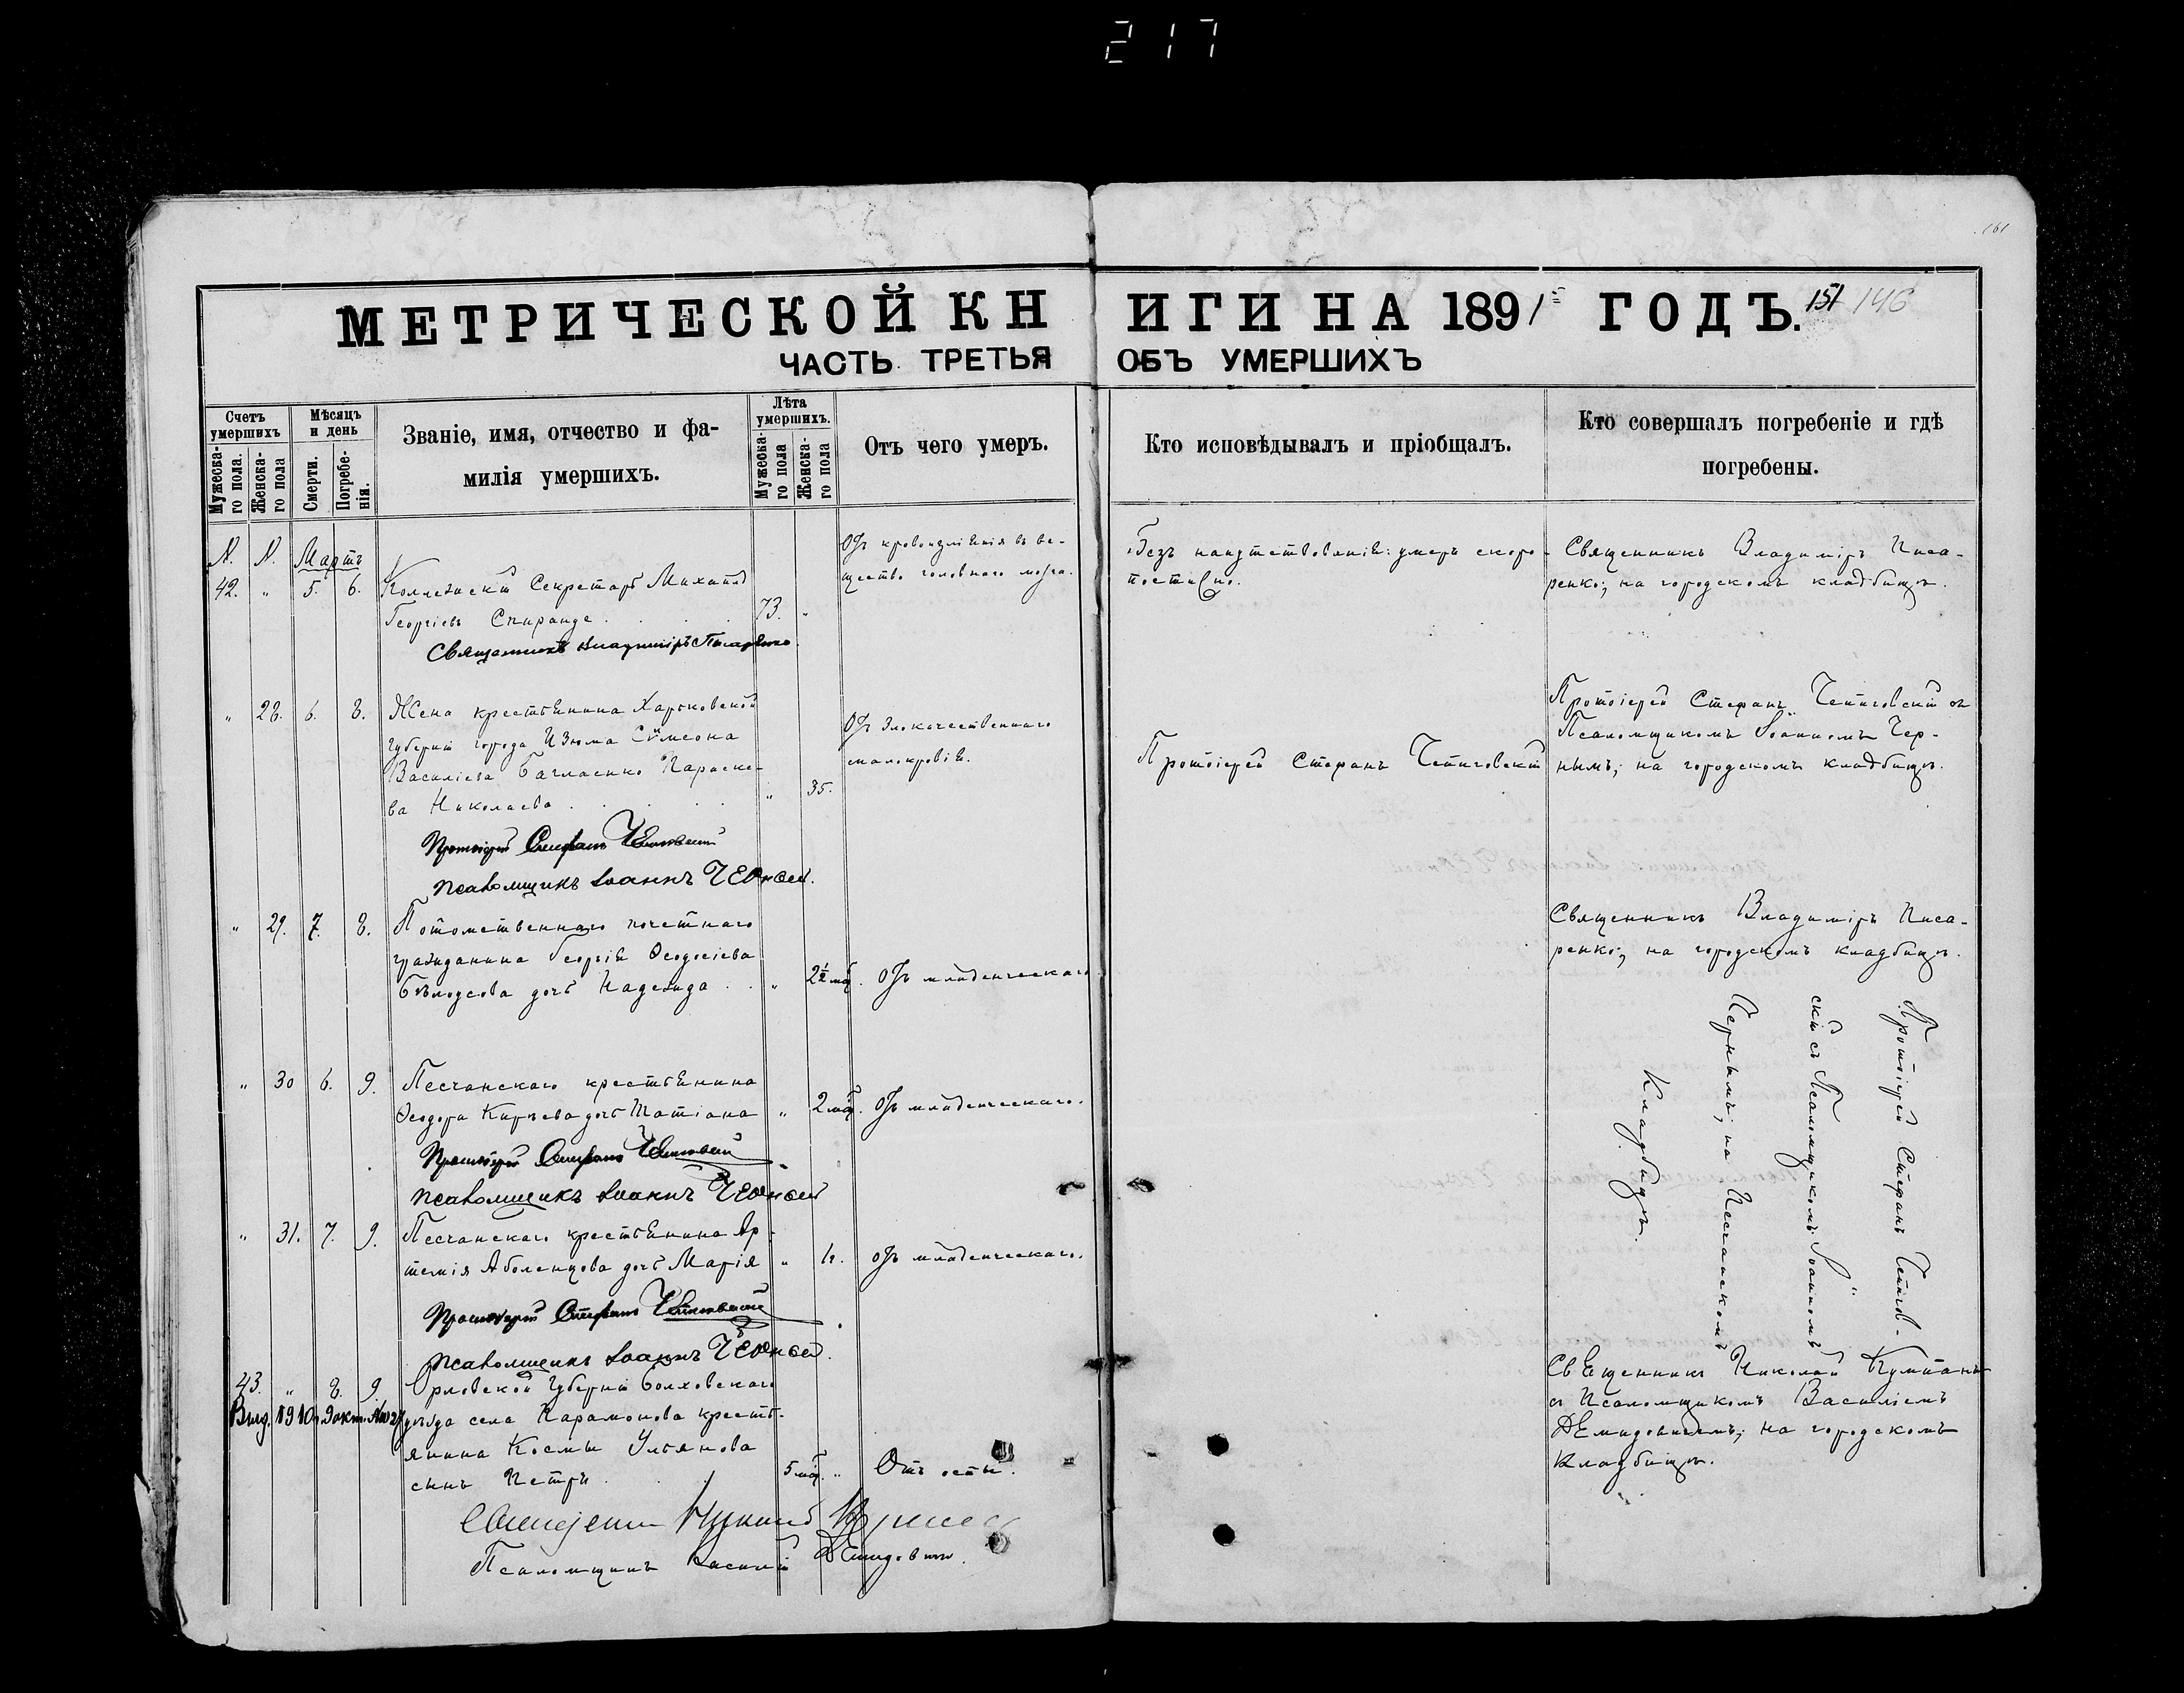 217
161
МЕТРИЧЕСКОЙ КНИГИ НА 1891 ГОДЪ.
151 146
ЧАСТЬ ТРЕТЬЯ ОБЪ УМЕРШИХЪ
Счетъ умершихъ
Мужеска-го пола.
Женска-го пола
Мѣсяцъ и день
Смерти.
Погребе-нія.
Званіе, имя, отчество и фа-
милія умершихъ.
Лѣта умершихъ.
Мужеска-го пола
Женска-го пола
Отъ чего умеръ.
Кто исповѣдывалъ и пріобщалъ.
Кто совершалъ погребеніе и гдѣ
погребены.
N. N. Мартъ
42. " 5. 6. Коллежскій Секретарь Михаилъ
Георгіевъ 73. "
Священникъ Владиміръ Писаренко
Отъ кровоизліянія въ ве-
щество головного мозга.
Безъ напутствованія: умеръ скоро-
постижно.
Священникъ Владиміръ Писа-
ренко; на городскомъ кладбищѣ.
" 28. 6. 8. Жена крестьянина Харьковской
губерніи города Изюма Сѵмеона
Васильева Параске-
ва Николаева " 35.
Отъ злокачественнаго
малокровія.
Протоіерей Стефанъ
Протоіерей Стефанъ съ
Псаломщикомъ Іоанномъ Чер-
нымъ; на городскомъ кладбищѣ.
Протоіерей Стефанъ
Псаломщикъ Іоаннъ Черный.
" 29. 7. 8. Потомственнаго почетнаго
гражданина Георгія Ѳеодосіева
Бѣлоусова дочь Надежда " 2½ мѣс. Отъ младенческаго
Священникъ Владиміръ Писа-
ренко; на городскомъ кладбищѣ.
" 30 6. 9. Песчанскаго крестьянина
Ѳеодора дочь Татіана " 2 мѣс. Отъ младенческаго.
Протоіерей Стефанъ
Псаломщикъ Іоаннъ Черный
" 31. 7. 9. Песчанскаго крестьянина Ар-
темія Аболенцова дочь Марія " Отъ младенческаго.
Протоіерей Стефанъ
Псаломщикъ Іоаннъ Черный.
Протоіерей Стефанъ
скій съ Псаломщикомъ Іоанномъ
Чернымъ; на Песчанскомъ
Кладбищѣ.
43. " 8. 9. Орловской губерніи Болховскаго
Выд. 1910 г. 9 окт. уѣзда села Парамонова кресть-
янина Космы Ульянова
сынъ Петръ 5 мѣс. " Отъ оспы.
Священникъ Николай
съ Псаломщикомъ Василіемъ
Демидовичемъ; на городскомъ
Кладбищѣ.
Священникъ Николай
Псаломщикъ Василій Демидовичъ.